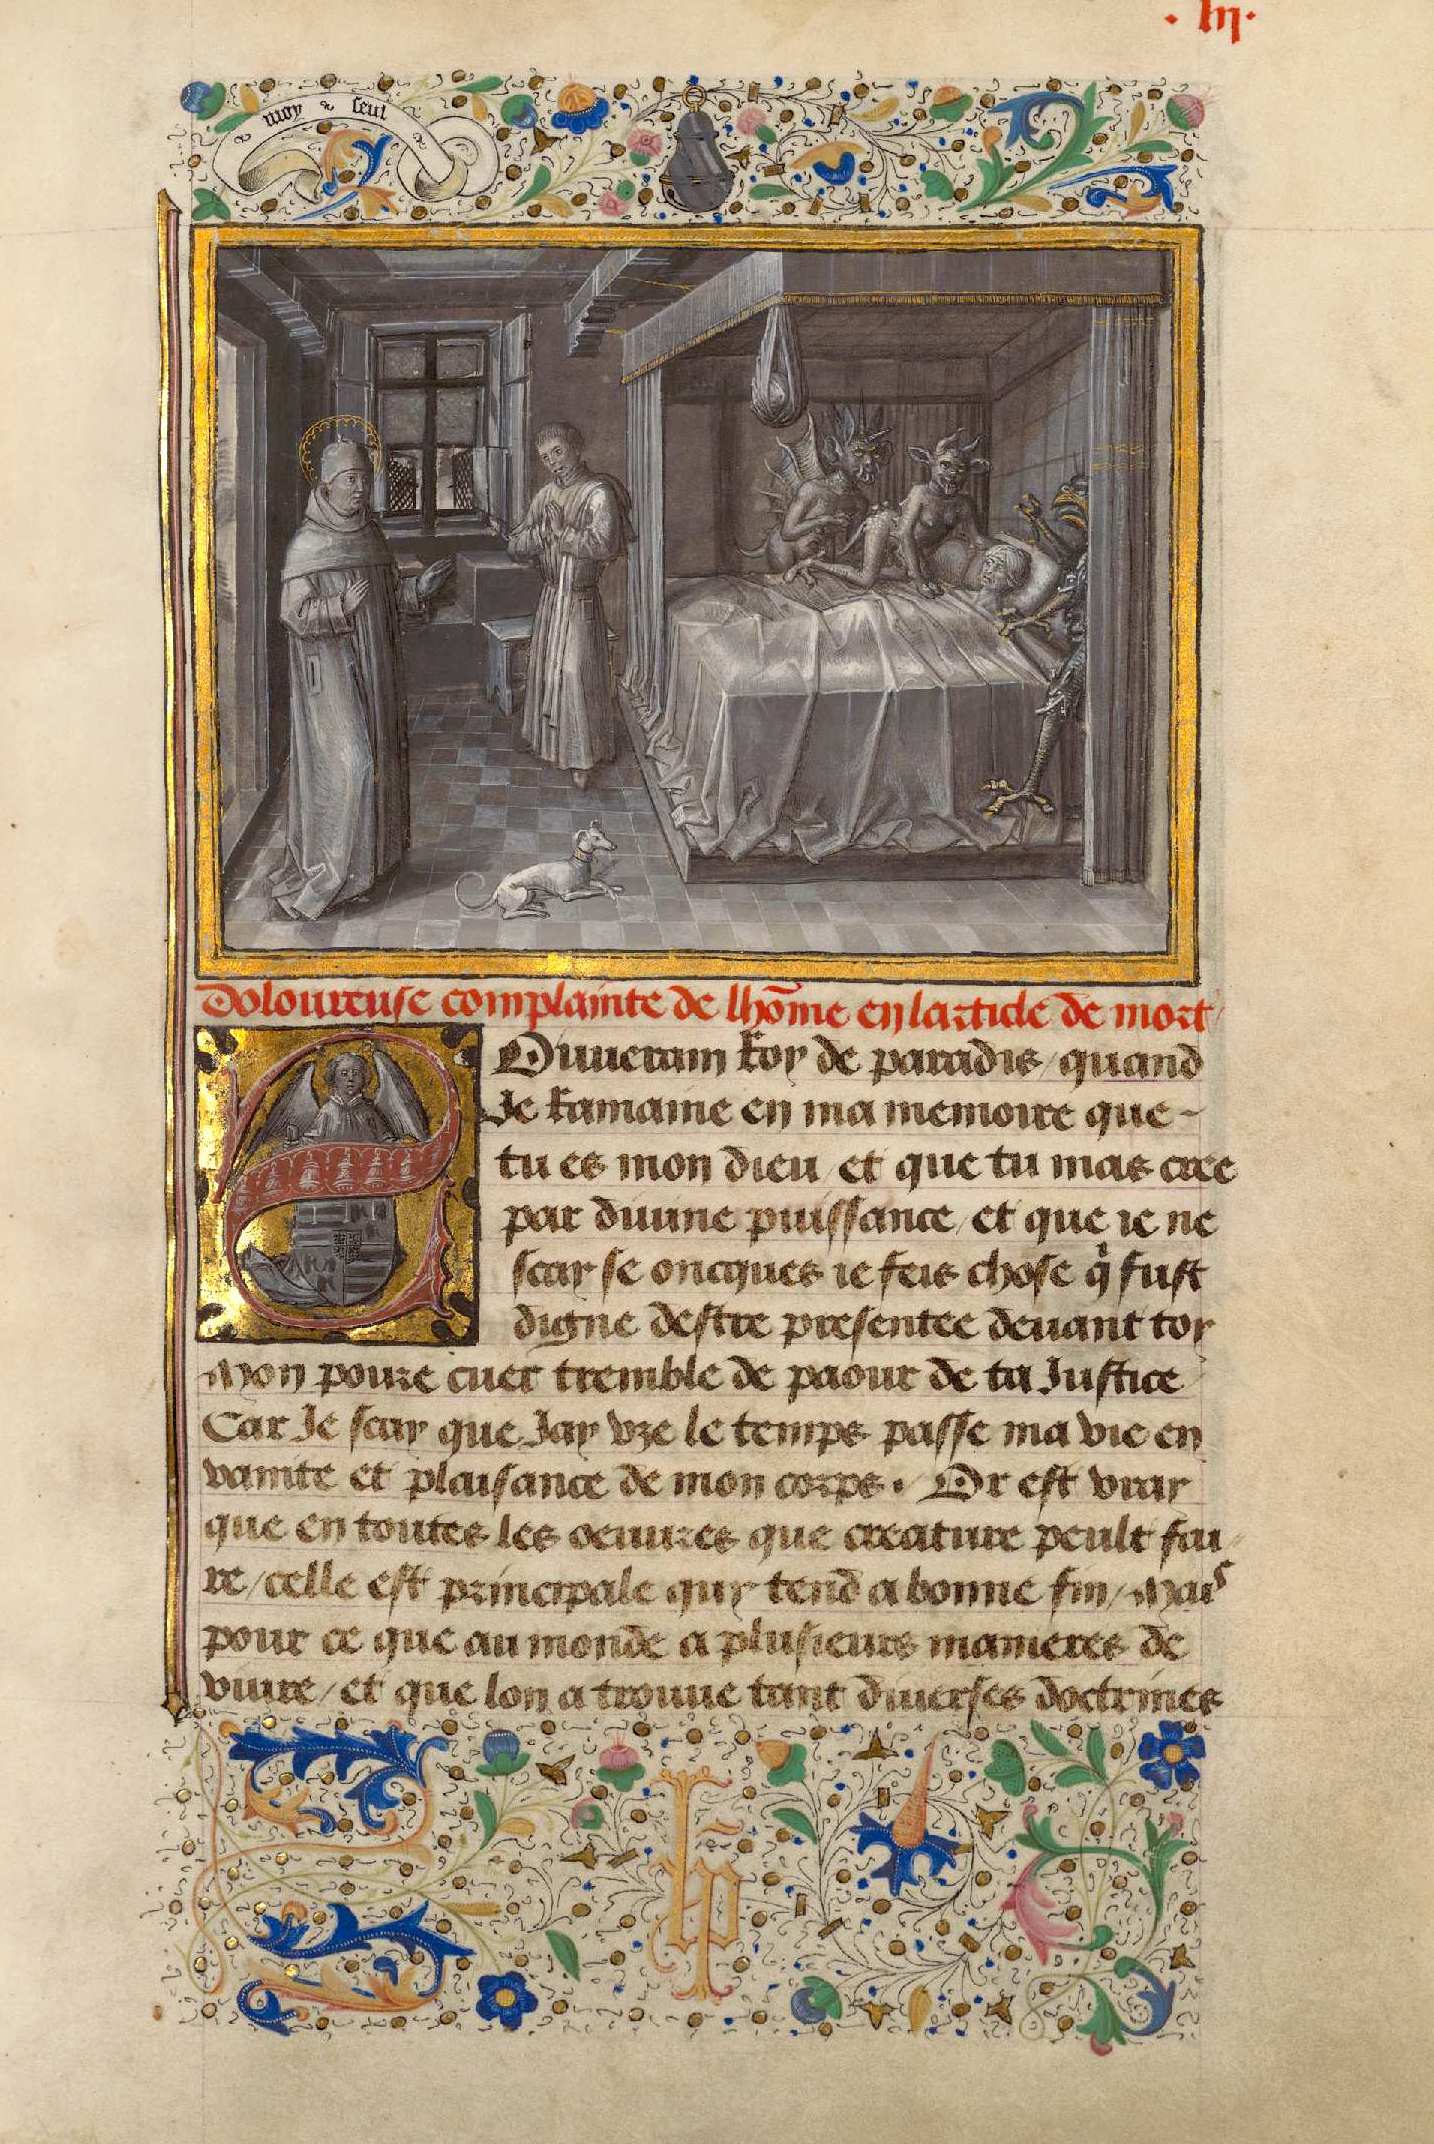 ·lij·
moy seul
Doloureuse complainte de lhōme en larticle de mort
Souuerain Roy de paradis / quand
Je Ramaine en ma memoire que
tu es mon dieu / et que tu mas cree
par diuine puissance / et que ie ne
scay se oncques ie feis chose q̄ fust
digne destre presentee deuant toy
Mon poure cuer tremble de paour de ta Justice
Car Je scay que Jay vze le temps passe ma vie en
vanite et plaisance de mon corps. Or est vray
que en toutes les oeuures que creature peult fai
re / celle est principale quy tend a bonne fin / Mais
pour ce que au monde a plusieurs manieres de
viure / et que lon a trouue tant diuerses doctrines